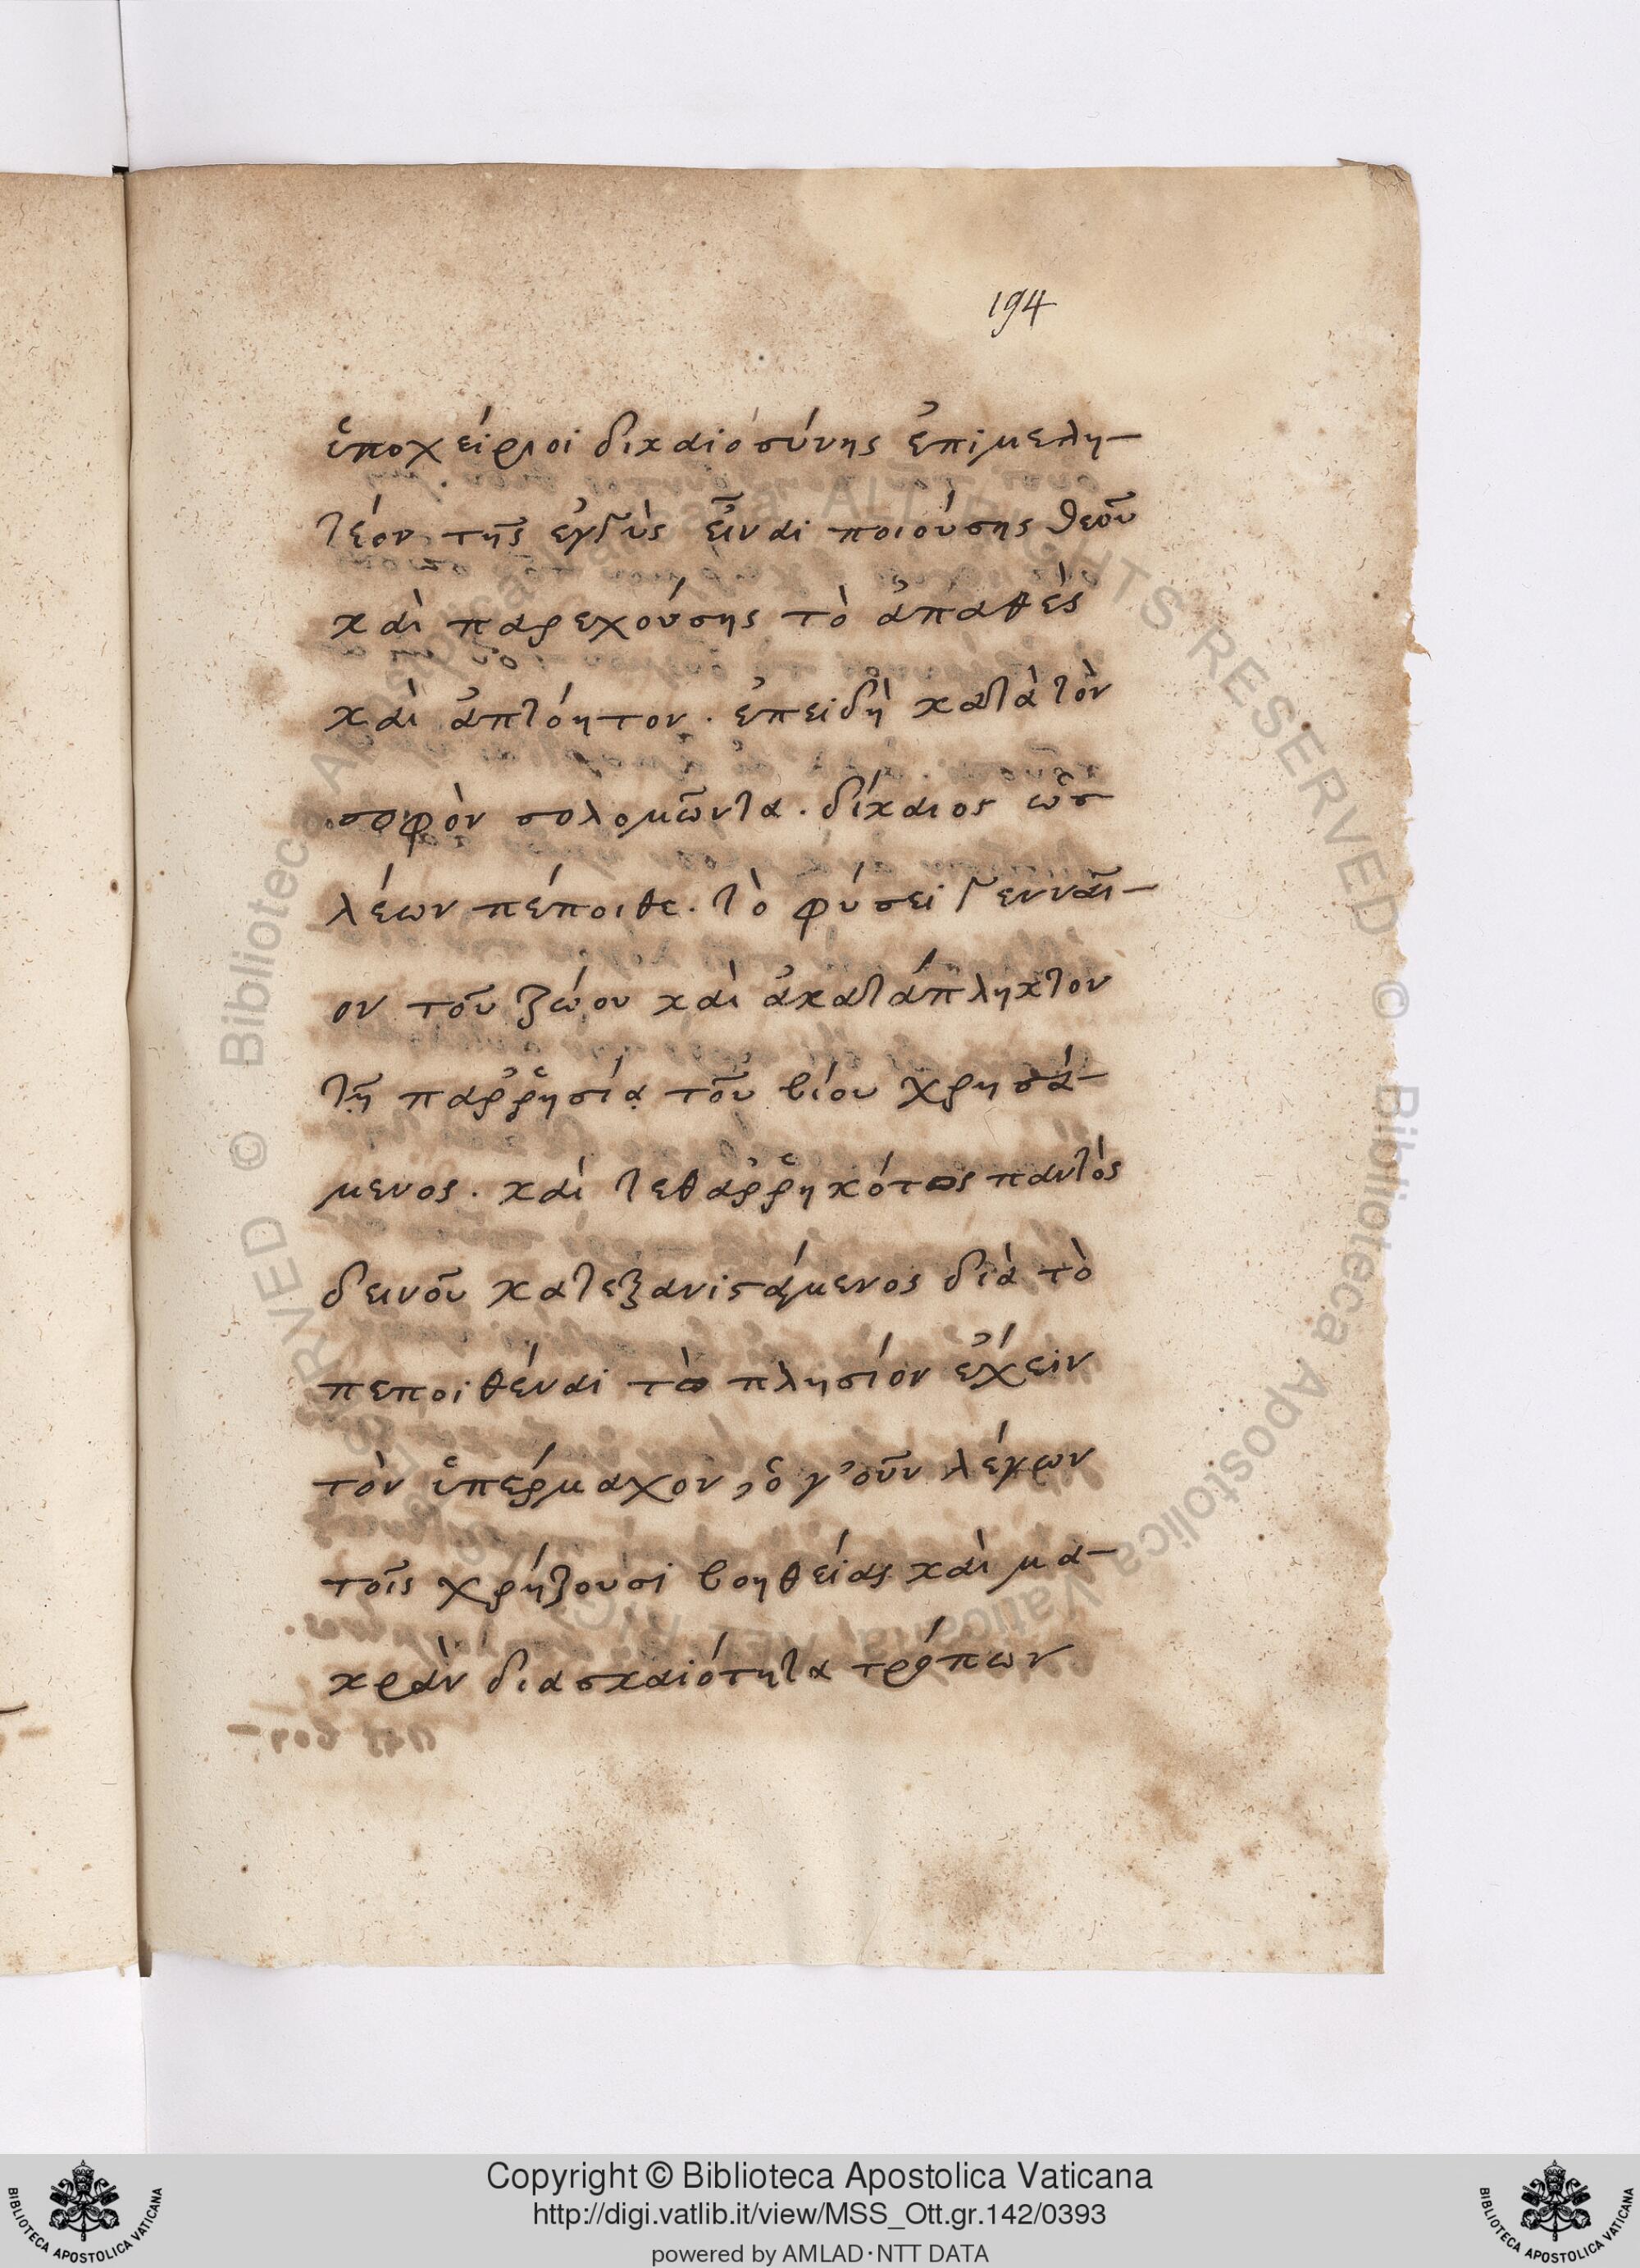 194
ὑποχείριοι δικαιοσύνης ἐπιμελη-
τέον τῆς ἐγγὺς εἶναι ποιούσης θεοῦ
καὶ παρεχούσης τὸ ἀπαθὲς
καὶ ἀπτόητον. ἐπειδὴ κατὰ τὸν
σοφὸν σολομῶντα. δίκαιος ὡσ
λέων πέποιθε. τὸ φύσει γενναῖ-
ον τοῦ ζώου καὶ ἀκατάπληκτον
τῇ παῤῥησίᾳ τοῦ βίου χρησά-
μενος. καὶ τεθαῤῥηκότος παντὸς
δεινοῦ κατεξανιστάμενος διὰ τὸ
πεποιθέναι τὸ πλησίον ἔχειν
τὸν ὑπέρμαχον, ὁ γ' οὖν λέγων
τοῖς χρήζουσι βοηθείας καὶ μα-
κρὰν δια σκαιότητα τρόπων
Copyright © Biblioteca Apostolica Vaticana
http://digi.vatlib.it/view/MSS_Ott.gr.142/0393
powered by AMLAD·NTT DATA
BIBLIOTECA APOSTOLICA VATICANA
BIBLIOTECA APOSTOLICA VATICANA